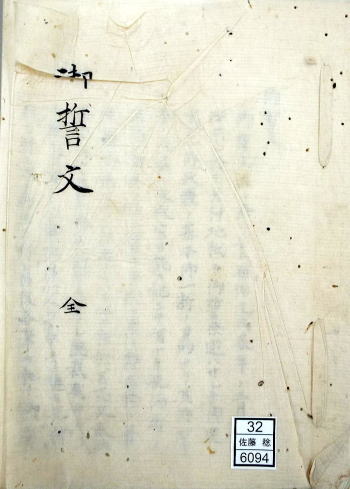 御誓文
全
32
佐藤 稔
6094